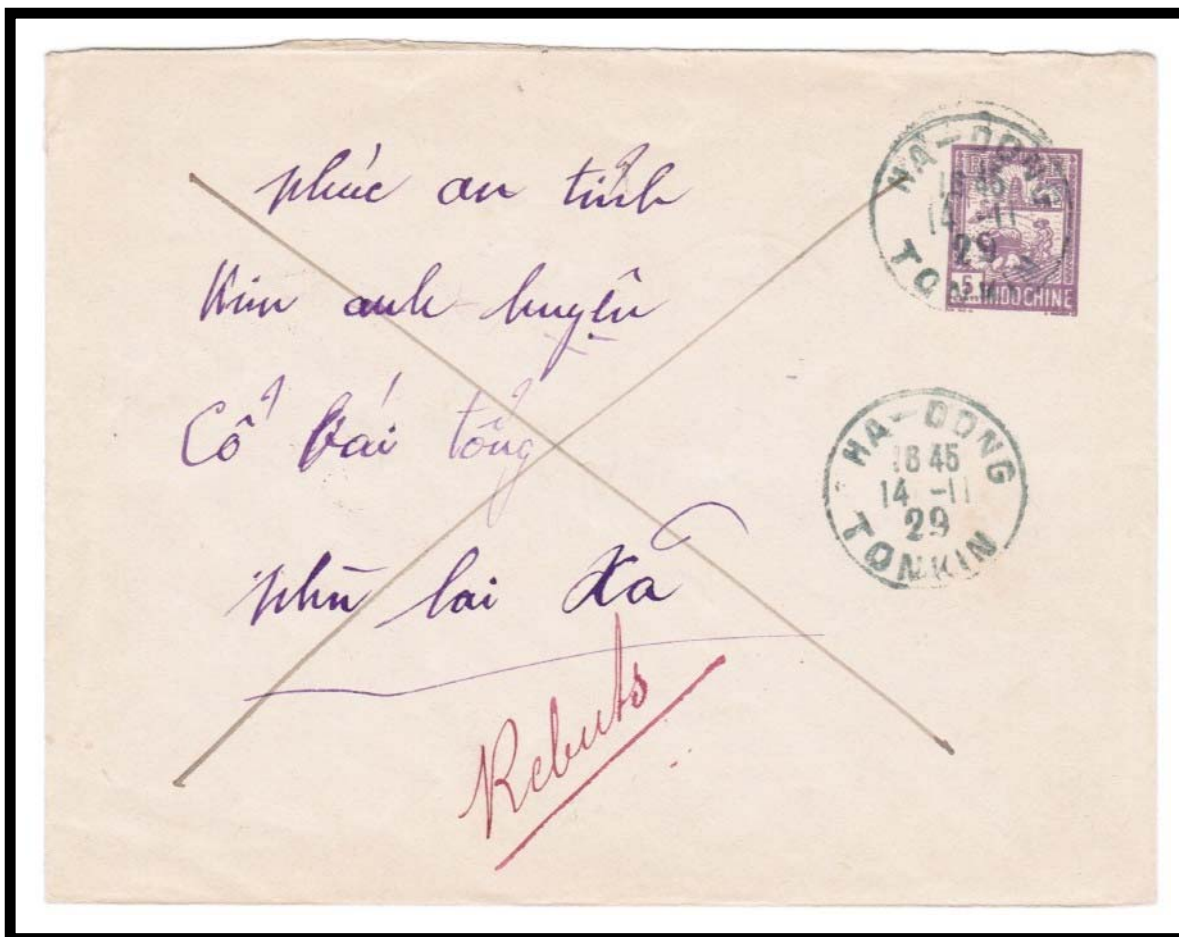 phúc an tỉnh
Kim anh huyện
Cổ Bái tổng
phù lai xã
Rebuts
HA-DONG
18 45
14 -11
29
TONKIN
5
INDOCHINE
HA-DONG
18 45
14 -11
29
TONKIN